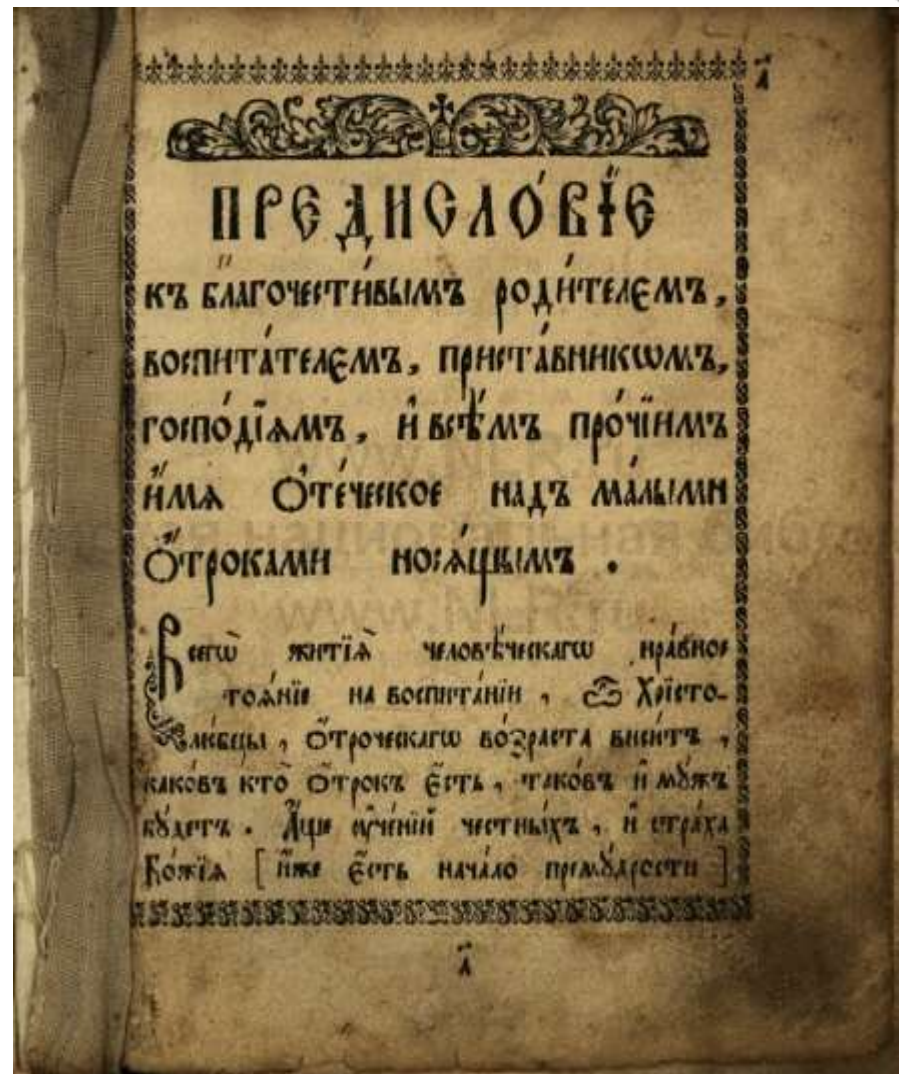 а҃
ПРЕДИСЛО́ВЇЕ
къ бл҃гочести́вымъ роди́телємъ,
воспита́телємъ, приста́вникѡмъ,
госпо́дїямъ, и҆ всѣ́мъ про́чїимъ
и҆́мя Ѻ҆те́ческое надъ ма́лыми
Ѻ҆́троками нося́щымъ .
Всегѡ̀ житїѧ̀ человѣ́ческагѡ нра́вное
тоѧ́нїе на воспита́нїи , Ѽ Хрїсто-
лю́бцы , ѻ҆́троческагѡ во́зраста виси́тъ ,
како́въ кто̀ ѻ҆́трокъ є҆́сть , тако́въ и҆ мꙋ́жъ
бꙋ́детъ . А҆́ще ᲂу҆че́нїй честны́хъ , и҆ стра́ха
Бо́жїѧ [ и҆́же є҆́сть нача́ло премꙋ́дрости ]
а҃